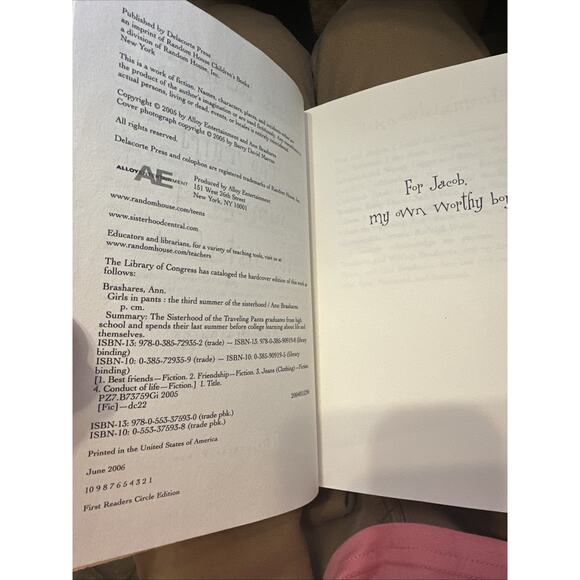 Published by Delacorte Press
an imprint of Random House Children's Books
a division of Random House, Inc.
New York
This is a work of fiction. Names, characters, places, and incidents either are
the product of the author's imagination or are used fictitiously. Any resemblance to
actual persons, living or dead, events, or locales is entirely coincidental.
Copyright © 2005 by Alloy Entertainment and Ann Brashares
Cover photograph copyright © 2005 by Barry David Marcus
All rights reserved.
Delacorte Press and colophon are registered trademarks of Random House, Inc.
ALLOY ENTERTAINMENT
AE
Produced by Alloy Entertainment
151 West 26th Street
New York, NY 10001
www.randomhouse.com/teens
www.sisterhoodcentral.com
Educators and librarians, for a variety of teaching tools, visit us at
www.randomhouse.com/teachers
The Library of Congress has cataloged the hardcover edition of this work as
follows:
Brashares, Ann.
Girls in pants : the third summer of the sisterhood / Ann Brashares
p. cm.
Summary: The Sisterhood of the Traveling Pants graduates from high
school and spends their last summer before college learning about life and
themselves.
ISBN-13: 978-0-385-72935-2 (trade) — ISBN-13: 978-0-385-90919-8 (library
binding)
ISBN-10: 0-385-72935-9 (trade) — ISBN-10: 0-385-90919-5 (library
binding)
[1. Best friends—Fiction. 2. Friendship—Fiction. 3. Jeans (Clothing)—Fiction.
4. Conduct of life—Fiction.] I. Title.
PZ7.B73759Gi 2005
[Fic]—dc22
ISBN-13: 978-0-553-37593-0 (trade pbk.)
ISBN-10: 0-553-37593-8 (trade pbk.)
Printed in the United States of America
June 2006
10 9 8 7 6 5 4 3 2 1
First Readers Circle Edition
For Jacob,
my own worthy boy